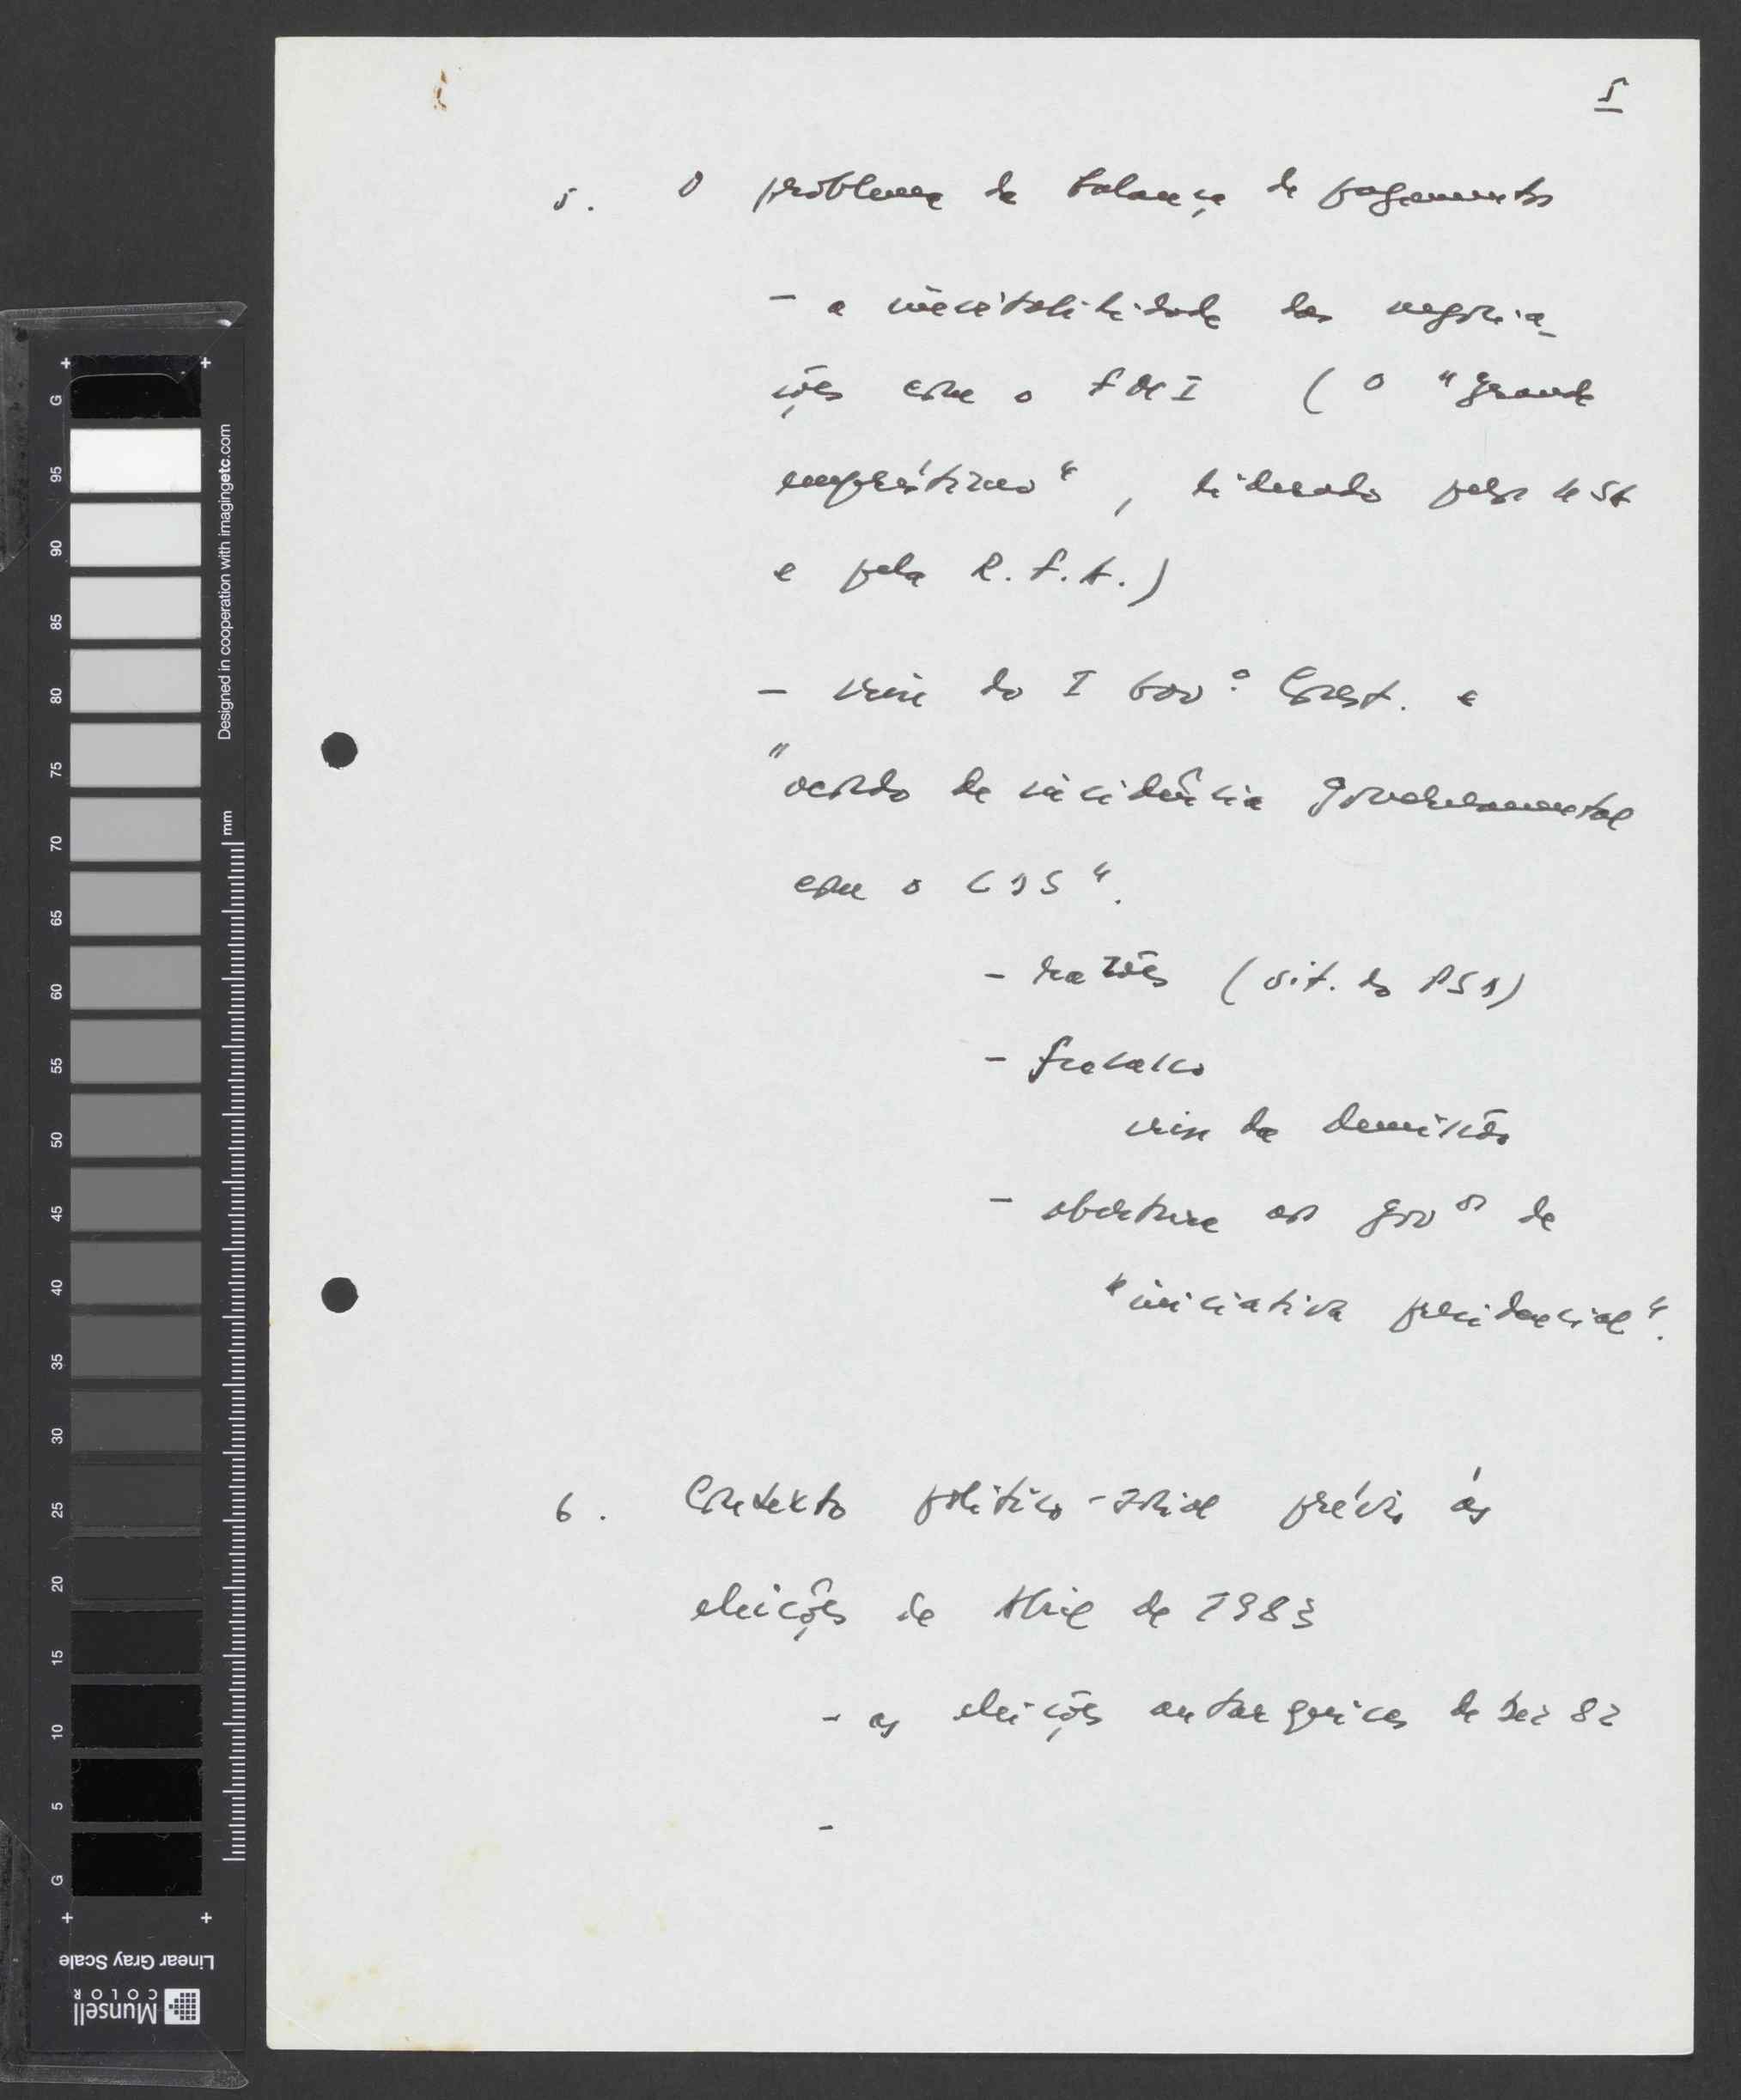 5
5. O problema da balança de pagamentos
- a inevitabilidade das negocia-
ções com o FMI (o "grande
empréstimo", liderado pelos USA
e pela R.F.A.)
- crise do I Govº Const. e
"acordo de incidência governamental
com o CDS".
- razões (sit. do PSD)
- fracasso
crise da demissão
- abertura aos govos de
"iniciativa presidencial".
6. Contexto político-social prévio às
eleições de Abril de 1983
- as eleições autárquicas de Dez 82
-
G
95
90
85
80
75
70
65
60
55
50
45
40
35
30
25
20
15
10
5
G
Designed in cooperation with imagingetc.com
mm
Linear Gray Scale
Munsell
COLOR